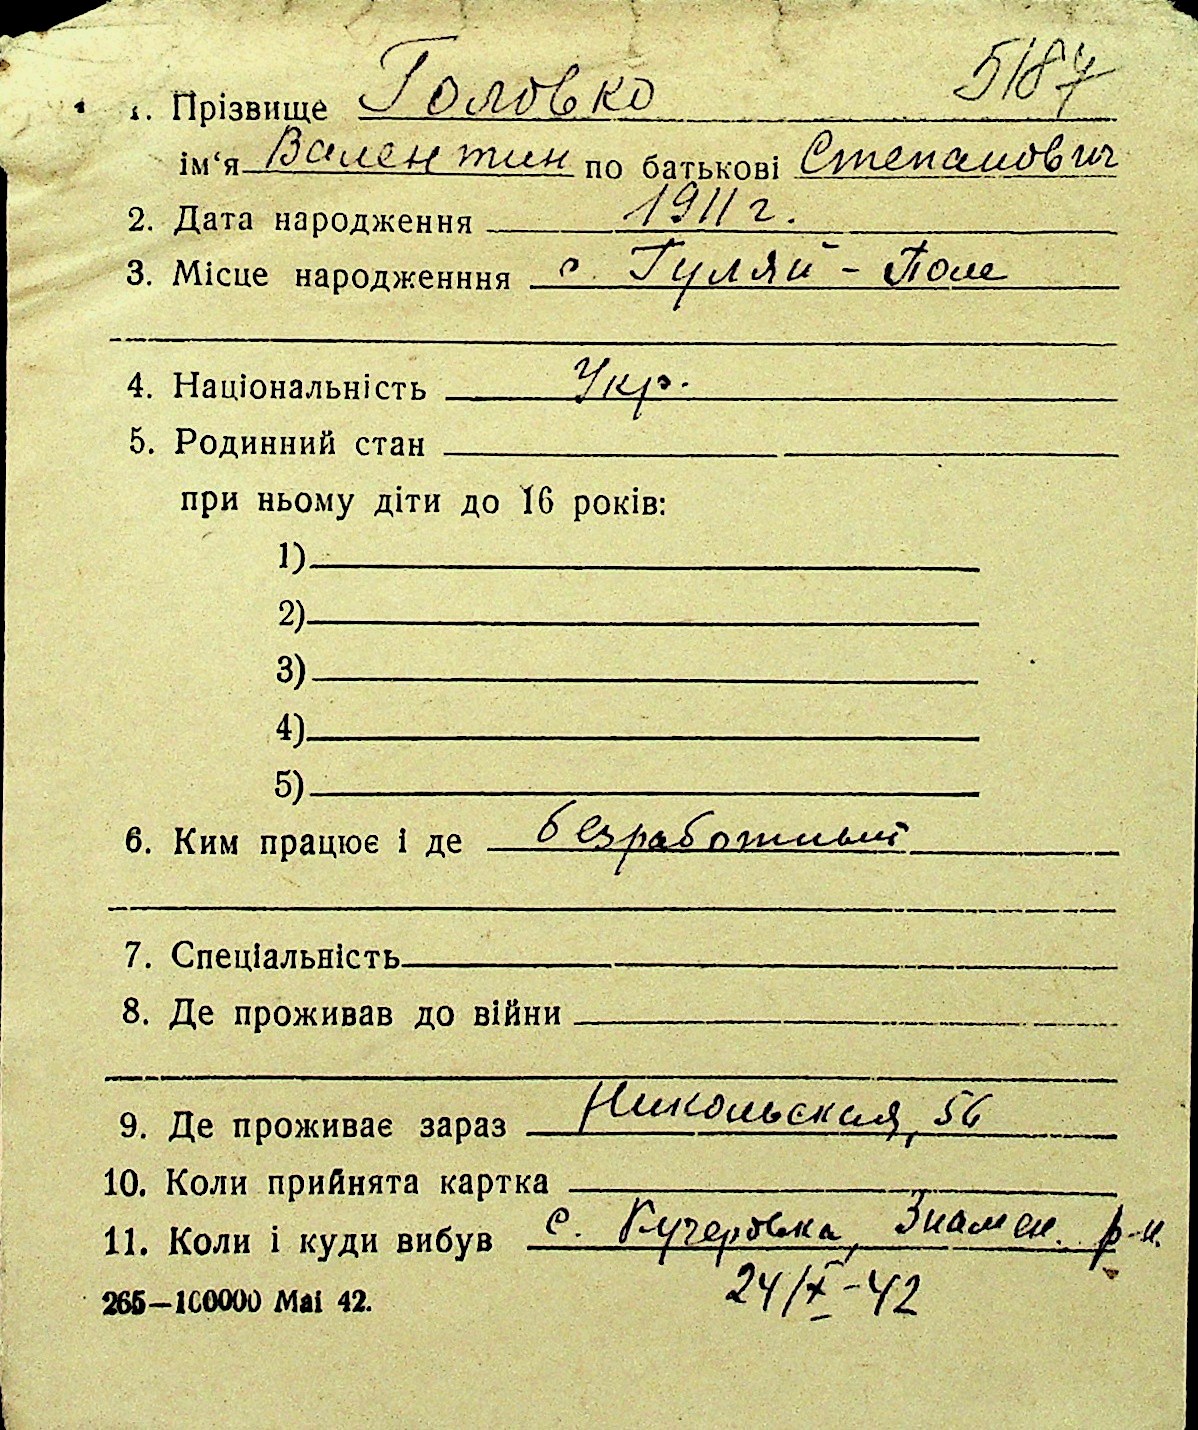 5187
1. Прізвище Головко
ім'я Валентин по батькові Степанович
2. Дата народження 1911 г.
3. Місце народженння с. Гуляй-Поле
4. Національність Укр.
5. Родинний стан
при ньому діти до 16 років:
1)
2)
3)
4)
5)
6. Ким працює і де безработный
7. Спеціальність
8. Де проживав до війни
9. Де проживає зараз Никольская, 56
10. Коли прийнята картка
11. Коли і куди вибув с. Кучеровка, Знамен. р-н.
24/X-42
265—100000 Mai 42.